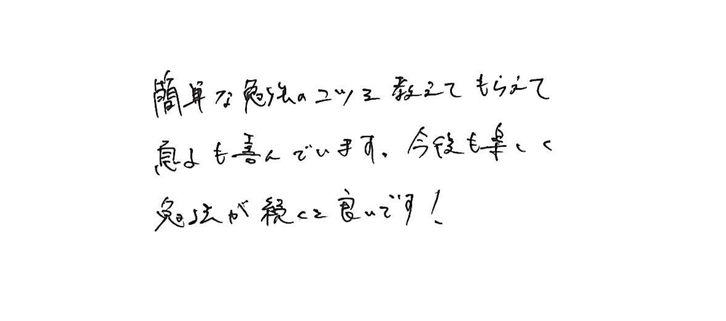 簡単な勉強のコツを教えてもらえて
息子も喜んでいます。今後も楽しく
勉強が続くと良いです!